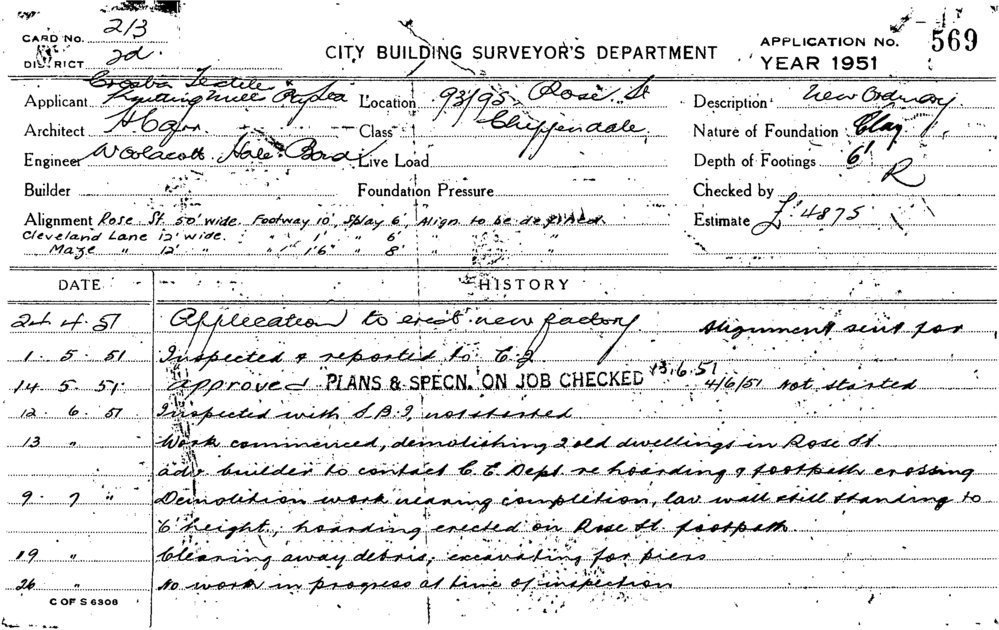 CARD No. 213
DISTRICT 2d
CITY BUILDING SURVEYOR'S DEPARTMENT
APPLICATION No. 569
YEAR 1951
Applicant Textile Knitting Mills Pty Ltd
Location 93/95 Rose St
Description New Ordinary
Architect
Class Chippendale
Nature of Foundation Clay
Engineer Woolacott Hale Bond
Live Load
Depth of Footings 6'
Builder
Foundation Pressure
Checked by R
Alignment Rose St. 50' wide. Footway 10', Splay 6', Align to be defined.
Estimate £4875
Cleveland Lane 12' wide. " 1' " 6' " "
Maze " 12' " " 1'6" " 8' " "
DATE HISTORY
24 4 51 Application to erect new factory Alignment sent for
1 5 51 Inspected & reported to
14 5 51 approved PLANS & SPECN. ON JOB CHECKED 13.6.51 4/6/51 Not started
12 6 51 Inspected with S.B.I. not started
13 " Work commenced, demolishing 2 old dwellings in Rose St
adv builder to contact C.E. Dept re hoarding & footpath crossing
9 7 " Demolition work nearing completion, lav wall still standing to
6' height, hoarding erected on Rose St footpath
19 " Clearing away debris, excavating for piers
26 " No work in progress at time of inspection
C OF S 6308